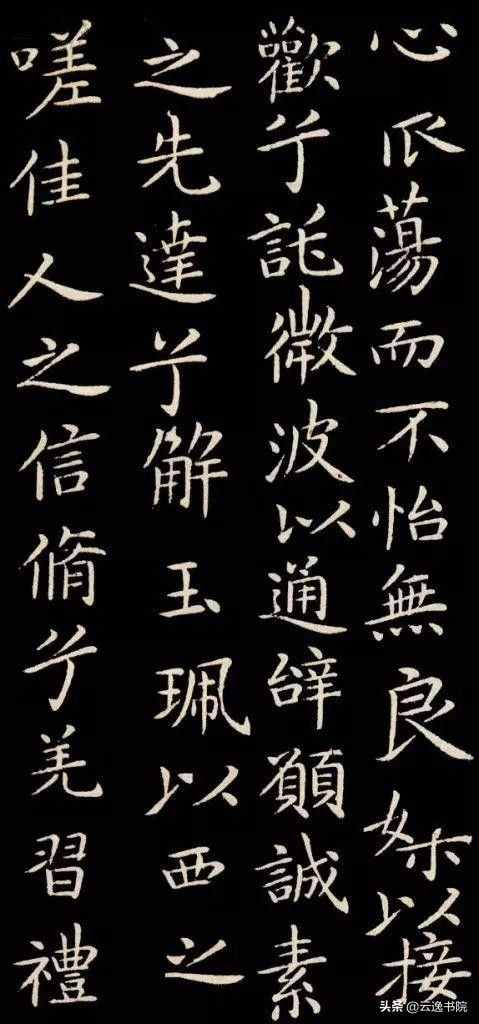 心蕩而不怡無良媒以接
歡兮託微波以通辝願誠素
之先達兮解玉珮以西之
嗟佳人之信脩兮羌習禮
头条 @云逸书院